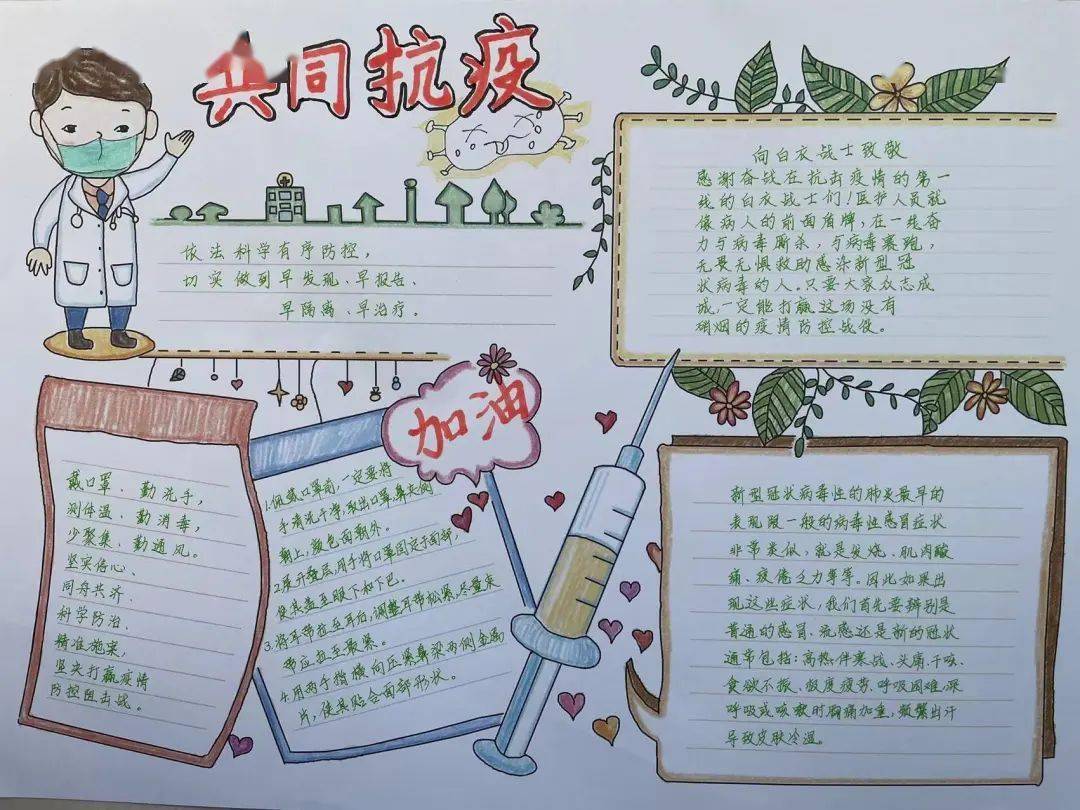 共同抗疫
依法科学有序防控,
切实做到早发现、早报告、
早隔离、早治疗。
向白衣战士致敬
感谢奋战在抗击疫情的第一
线的白衣战士们!医护人员就
像病人的前面盾牌,在一线奋
力与病毒厮杀,与病毒赛跑,
无畏无惧救助感染新型冠
状病毒的人。只要大家众志成
城,一定能打赢这场没有
硝烟的疫情防控战役。
加油
戴口罩、勤洗手,
测体温、勤消毒,
少聚集、勤通风。
坚定信心、
同舟共济、
科学防治、
精准施策,
坚决打赢疫情
防控阻击战。
1.佩戴口罩前,一定要将
手清洗干净,取出口罩,鼻夹侧
朝上,颜色面朝外。
2.展开叠层,用手将口罩固定于面部,
使其盖至眼下和下巴。
3.将耳带拉至耳后,调整耳带松紧,尽量夹
带应拉至最紧。
4.用两手指横向压紧鼻梁两侧金属
片,使其贴合面部形状。
新型冠状病毒性的肺炎最早的
表现跟一般的病毒性感冒症状
非常类似,就是发烧、肌肉酸
痛、疲倦乏力等等。因此如果出
现这些症状,我们首先要辨别是
普通的感冒、流感还是新的冠状
通常包括:高热、伴寒战、头痛、干咳、
食欲不振、极度疲劳、呼吸困难、深
呼吸或咳嗽时胸痛加重,频繁出汗
导致皮肤冷湿。